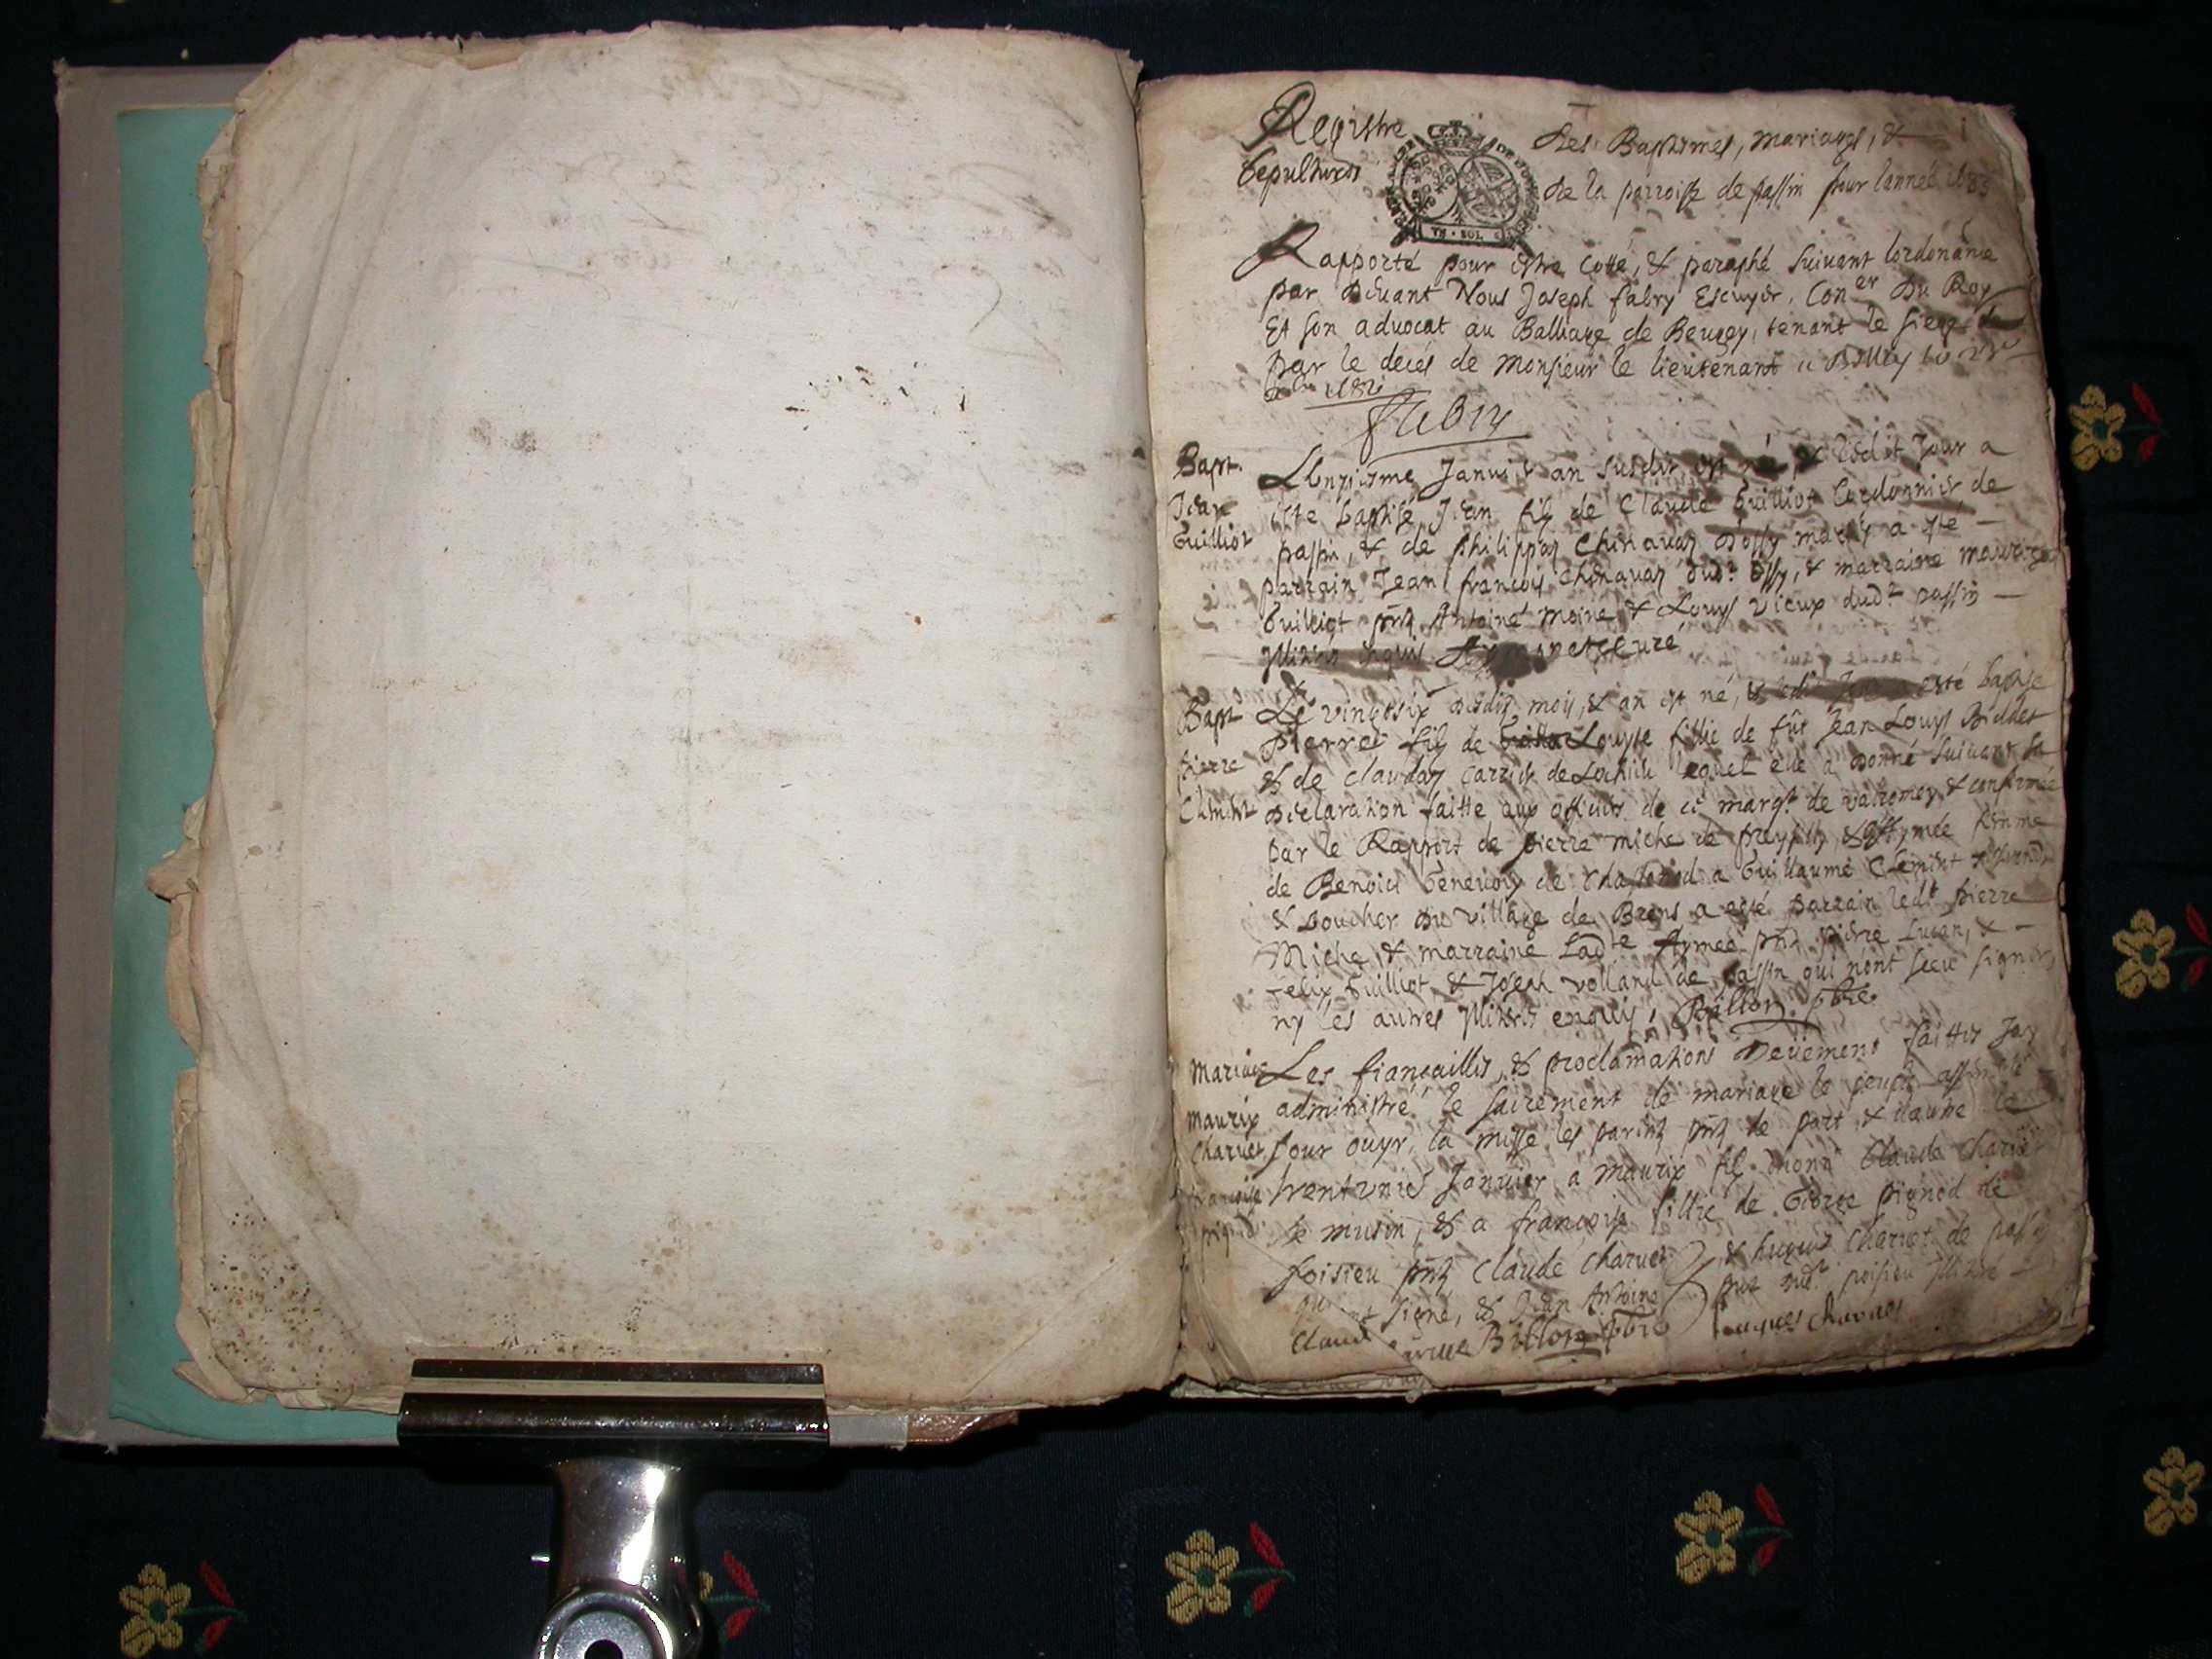 Registre des Baptismes, mariages, &
sepultures de la parroisse de passin pour lannée 1683
VN · SOL
Rapporté pour estre cotté, & paraphé suivant lordonance
par devant Nous Joseph fabry Escuyer, Con.er du Roy
Et son advocat au Balliage de Beugey, tenant le siege
par le decés de Monsieur le lieutenant a Belley le
1682
Fabry
Bapt.
Jean
Guilliot
Lonziesme Janvier an susdit est né & ledit Jour a
esté baptisé Jean fils de Claude Guilliot Cordonnier de
passin, & de philippaz Chenavaz dossy mariés a esté
parrain Jean françois Chenavaz dud.t ossy, & marraine
Guilliot pnts Antoine moine & Louys vieux dud.t passin
curé
Bapt
pierre
Clement
Le vingtsix desdits mois, & an est né, & ledit Jour a esté baptisé
pierre fils de Louyse fillie de fût Jean Louys
& de claudaz Carrier de Lochieu lequel elle a donné suivant sa
declaration faitte aux officiers de ce marq.t de valromey & confirmée
par le Rapport de pierre miche de & Aymée femme
de Benoict Genevoys de a Guillaume Clement
& boucher du village de Brens a esté parrain led.t pierre
Miche, & marraine Lad.te Aymée pnts pierre Luian, &
felix Guilliot, & Joseph volland de passin qui nont sceu signer
ny les autres enquis, Billion pbre
Mariage
Maurix
Charvet
françoise
pignod
Les fiançailles, & proclamations deüement faittes Jay
administré le sacrement de mariage le peuple assemblé
pour ouyr la messe les parents pnts de part & dautre le
trentunie Janvier a maurix fils dhonn Claude Charvet
le musin, & a françoise fillie de George pignod de
poisieu pnts Claude Charvet & hugues Charvet de passin
qui ont signé, & Jean Antoine dud.t poisieu
Claude Billion pbre hugues charvet